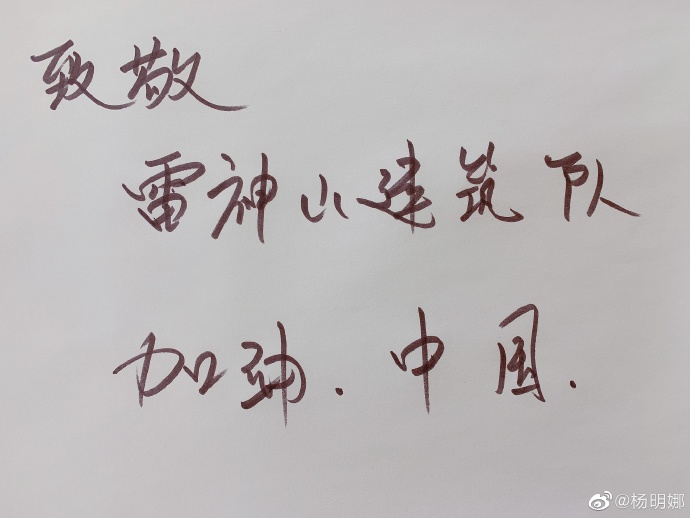 致敬
雷神山建筑队
加油.中国.
@杨明娜